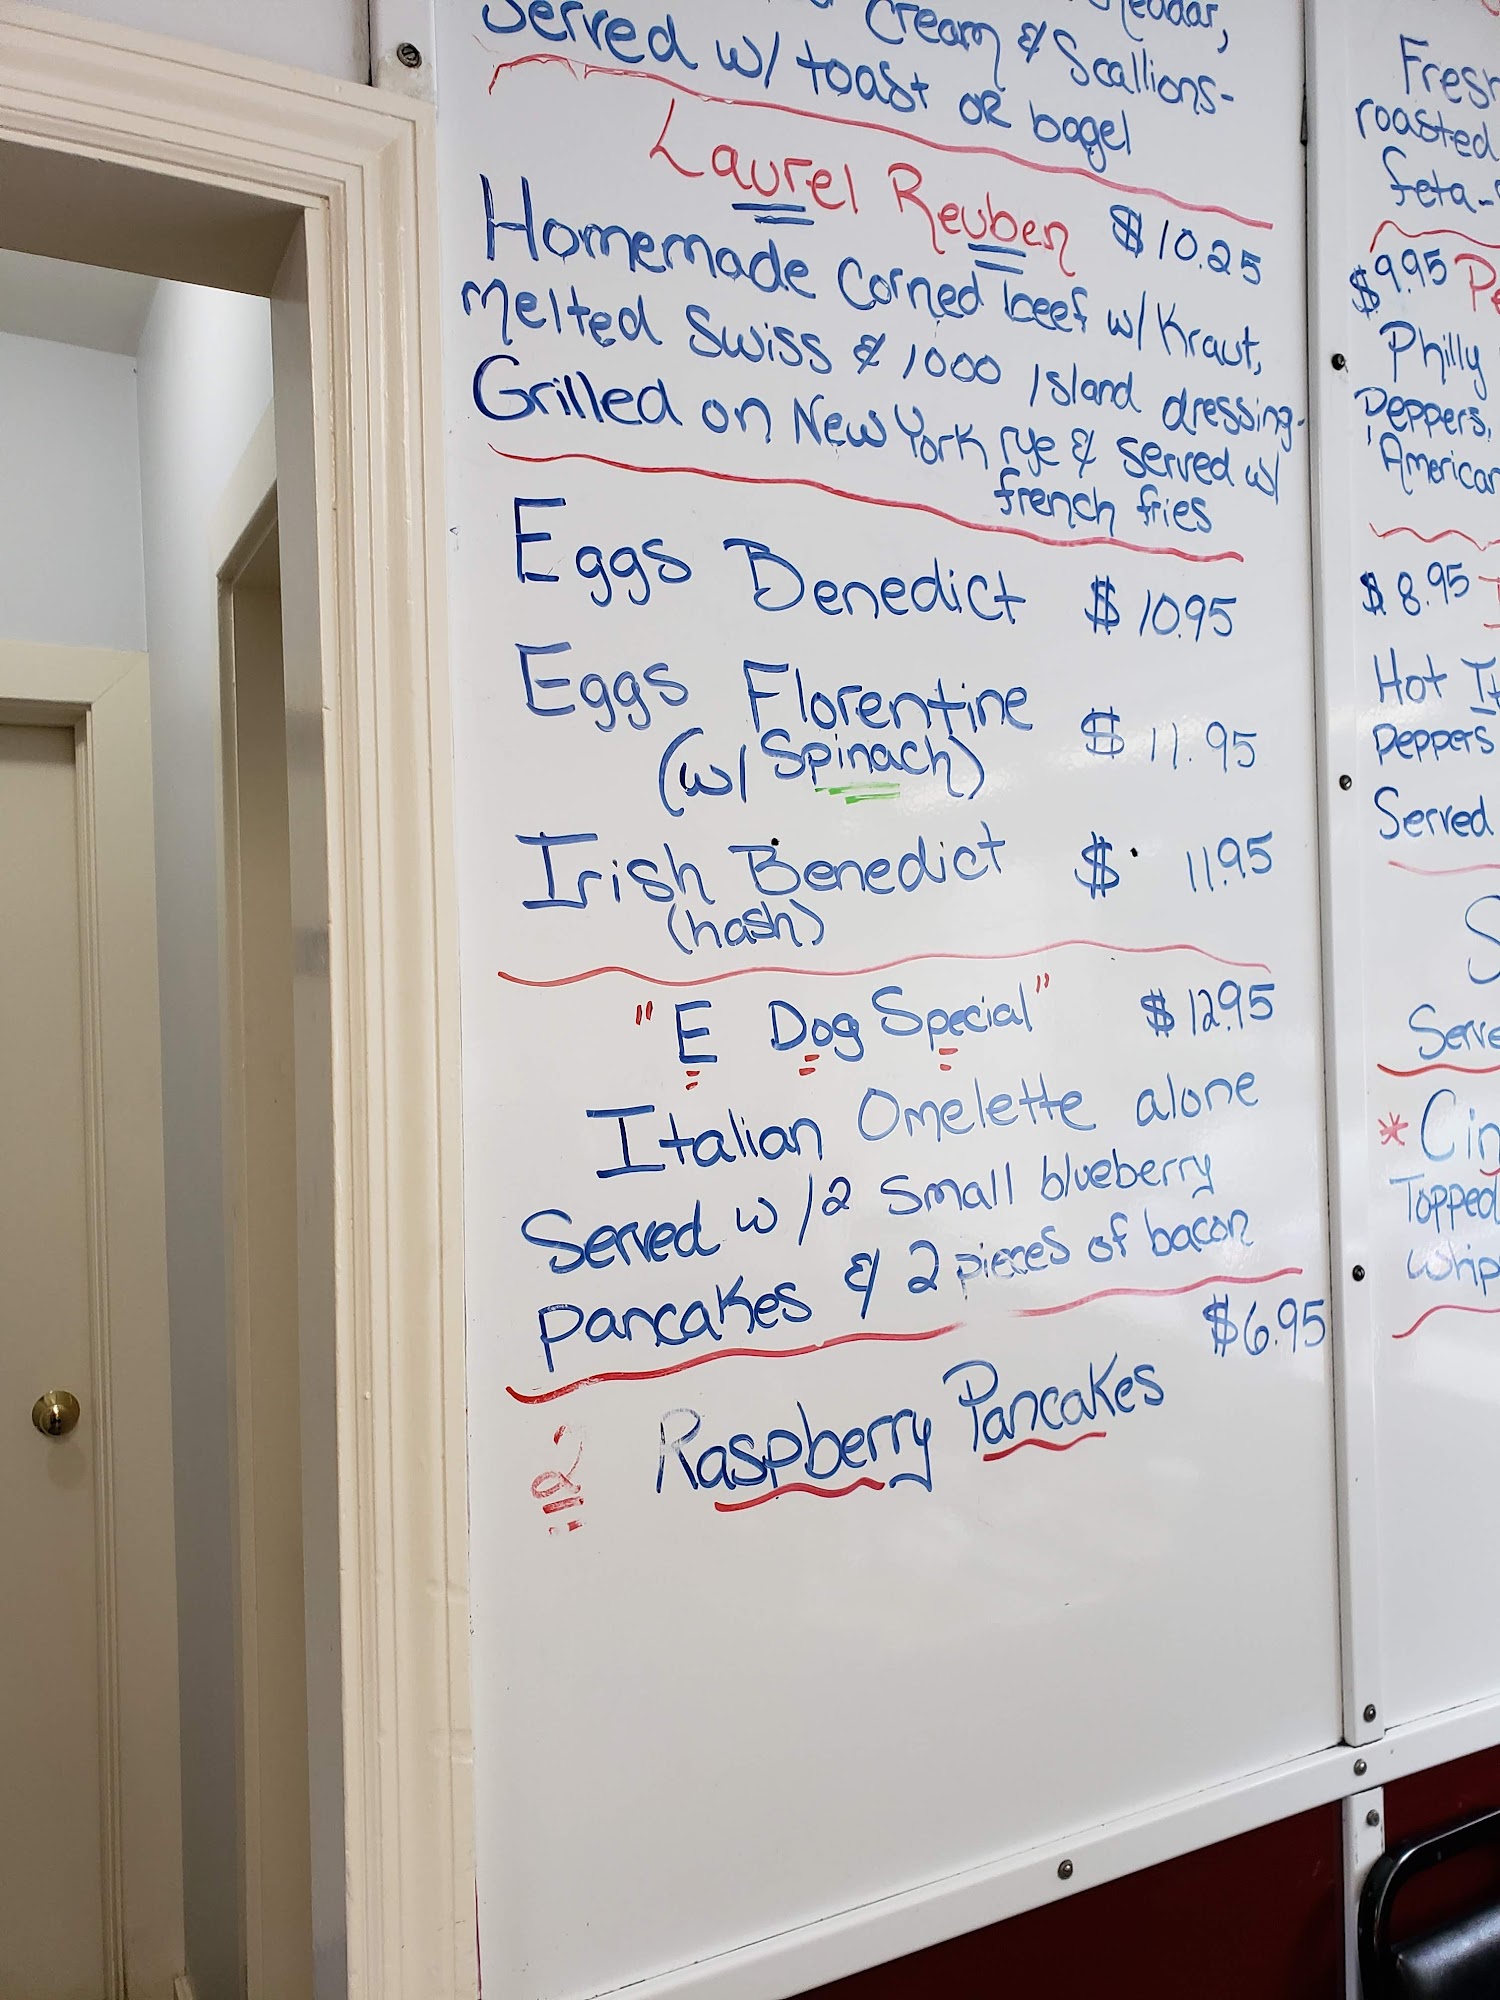 Cheddar,
Cream & Scallions-
Served w/ toast OR bagel
Laurel Reuben $10.25
Homemade Corned beef w/ Kraut,
Melted Swiss & 1000 Island dressing-
Grilled on New York rye & served w/
french fries
Eggs Benedict $10.95
Eggs Florentine $11.95
(w/ Spinach)
Irish Benedict $11.95
(hash)
"E Dog Special" $12.95
Italian Omelette alone
Served w/2 small blueberry
pancakes & 2 pieces of bacon
$6.95
Raspberry Pancakes
Fresh
roasted
feta-
$9.95
Philly
Peppers,
American
$8.95
Hot
peppers
Served
Serve
*
Topped